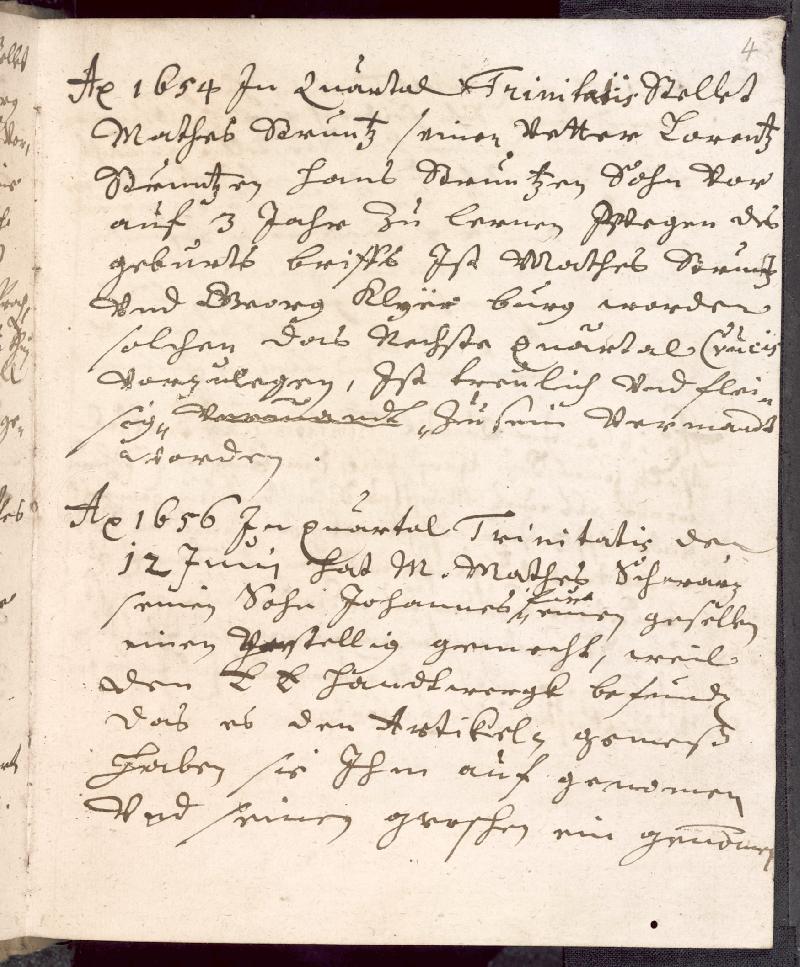 4
Ao 1654 In Quartal Trinitatis Stellet
Mathes Struntz seinen Vetter Lorentz
Struntzen Hans Struntzen Sohn Vor
auf 3 Jahr Zu lernen Wegen des
geburts briffs Ist Mathes Struntz
Vnd Georg Klyër burg worden
solchen das Nechste quartal Crucis
Vorzulegen, Ist treulich Vnd flei-
sig Zu sein Vermandt
worden.
Ao 1656 In quartal Trinitatis den
12 Junii hat M. Mathes Schwartz
seinen Sohn Johannes für einen gesellen
einen Vorstellig gemacht, weil
den E E Handtwergk befundn
das es den Artikeln gemeß
Haben sie Ihm auf genomen
Vnd seinen groschen ein genomen